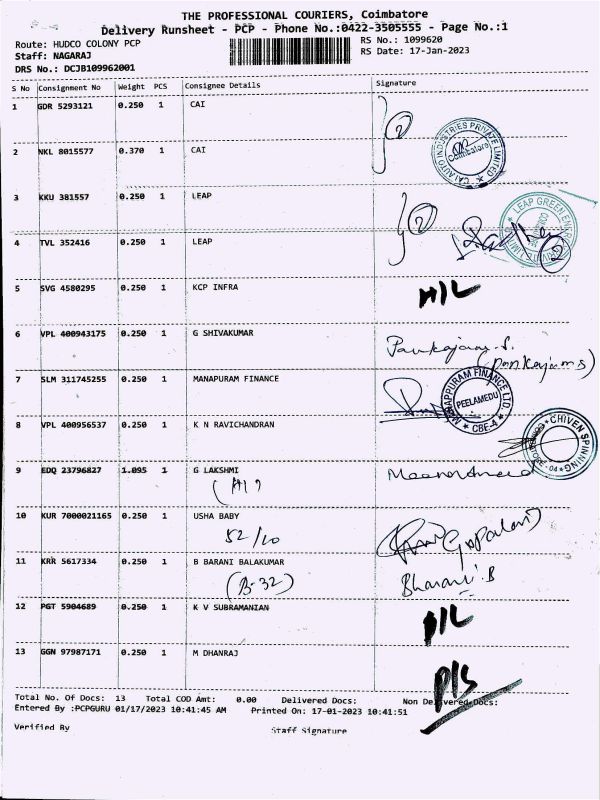 THE PROFESSIONAL COURIERS, Coimbatore
Delivery Runsheet - PCP - Phone No.:0422-3505555 - Page No.:1
Route: HUDCO COLONY PCP
RS No.: 1099620
Staff: NAGARAJ
RS Date: 17-Jan-2023
DRS No.: DCJB109962001
S No Consignment No Weight PCS Consignee Details Signature
1 GDR 5293121 0.250 1 CAI
2
CAI AUTO INDUSTRIES PRIVATE LIMITED
Coimbatore
2 NKL 8015577 0.370 1 CAI
3 KKU 381557 0.250 1 LEAP
2
LEAP GREEN ENERGY PRIVATE LIMITED
2
4 TVL 352416 0.250 1 LEAP
5 SVG 4580295 0.250 1 KCP INFRA
6 VPL 400943175 0.250 1 G SHIVAKUMAR
Pankajam. S.
(Pankajam S)
7 SLM 311745255 0.250 1 MANAPURAM FINANCE
MANAPPURAM FINANCE LTD.
PEELAMEDU
CBE-4
8 VPL 400956537 0.250 1 K N RAVICHANDRAN
CHIVEN SPINNING
9 EDQ 23796827 1.095 1 G LAKSHMI
10 KUR 7000021165 0.250 1 USHA BABY
52/10
Gopalan
11 KRR 5617334 0.250 1 B BARANI BALAKUMAR
(B-32)
Bharani.B
12 PGT 5904689 0.250 1 K V SUBRAMANIAN
13 GGN 97987171 0.250 1 M DHANRAJ
Total No. Of Docs: 13 Total COD Amt: 0.00 Delivered Docs: Non Delivered Docs:
Entered By :PCPGURU 01/17/2023 10:41:45 AM Printed On: 17-01-2023 10:41:51
Verified By Staff Signature